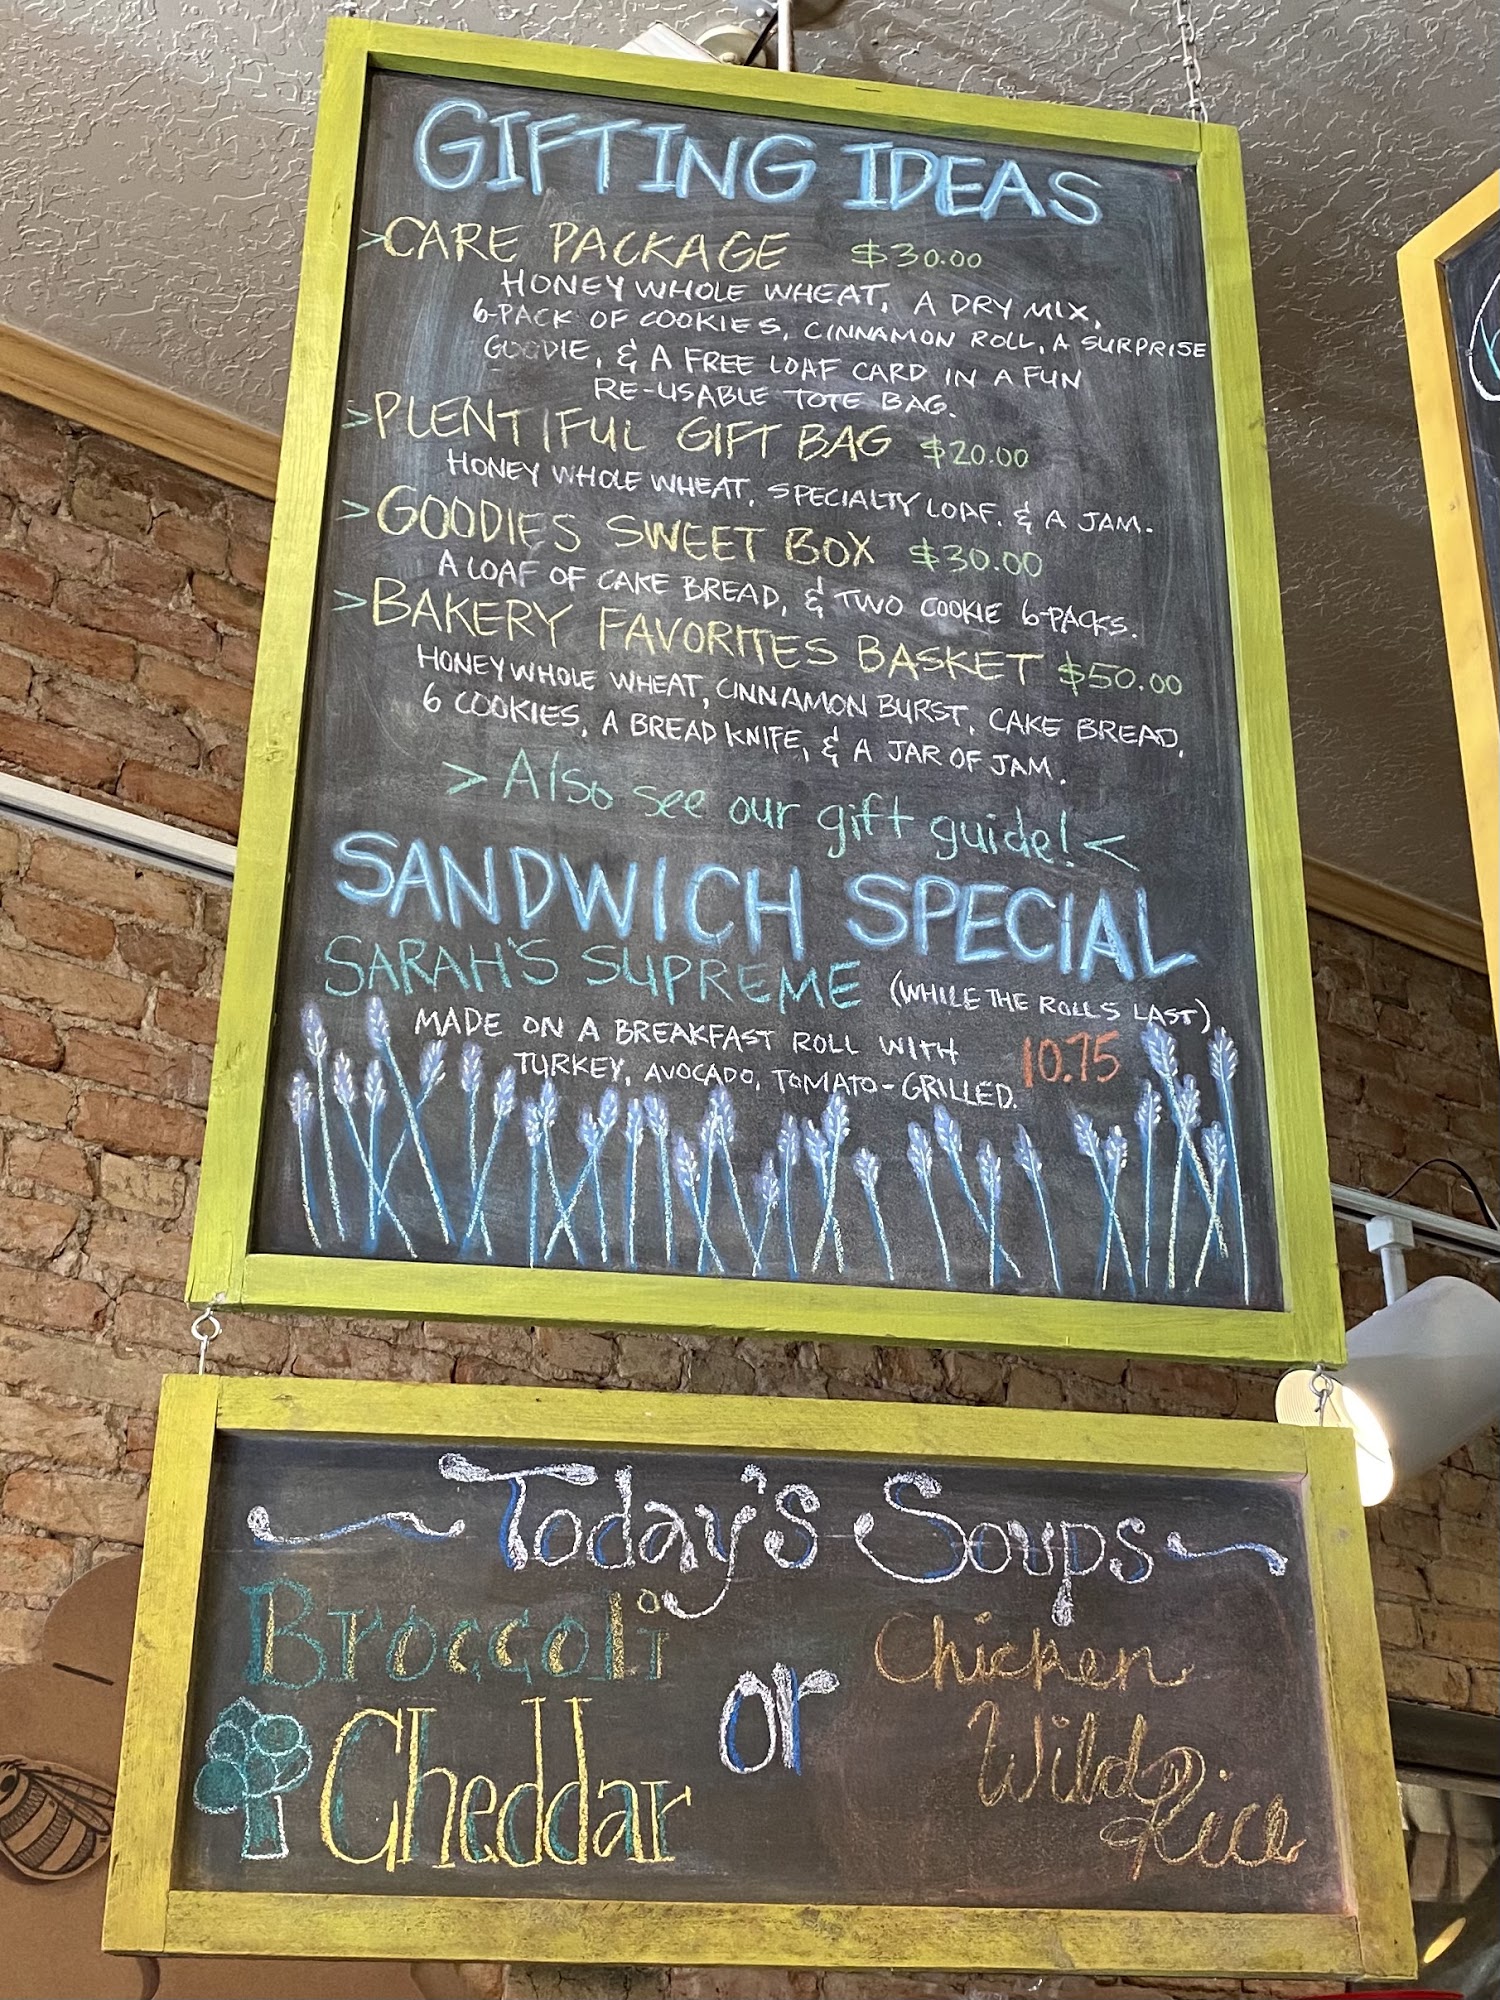 GIFTING IDEAS
>CARE PACKAGE $30.00
HONEY WHOLE WHEAT, A DRY MIX,
6-PACK OF COOKIES, CINNAMON ROLL, A SURPRISE
GOODIE, & A FREE LOAF CARD IN A FUN
RE-USABLE TOTE BAG.
>PLENTIFUL GIFT BAG $20.00
HONEY WHOLE WHEAT, SPECIALTY LOAF, & A JAM.
>GOODIES SWEET BOX $30.00
A LOAF OF CAKE BREAD, & TWO COOKIE 6-PACKS.
>BAKERY FAVORITES BASKET $50.00
HONEY WHOLE WHEAT, CINNAMON BURST, CAKE BREAD,
6 COOKIES, A BREAD KNIFE, & A JAR OF JAM.
> Also see our gift guide! <
SANDWICH SPECIAL
SARAH'S SUPREME (WHILE THE ROLLS LAST)
MADE ON A BREAKFAST ROLL WITH 10.75
TURKEY, AVOCADO, TOMATO-GRILLED.
Today's Soups
Broccoli
Cheddar
or
Chicken
Wild
Rice